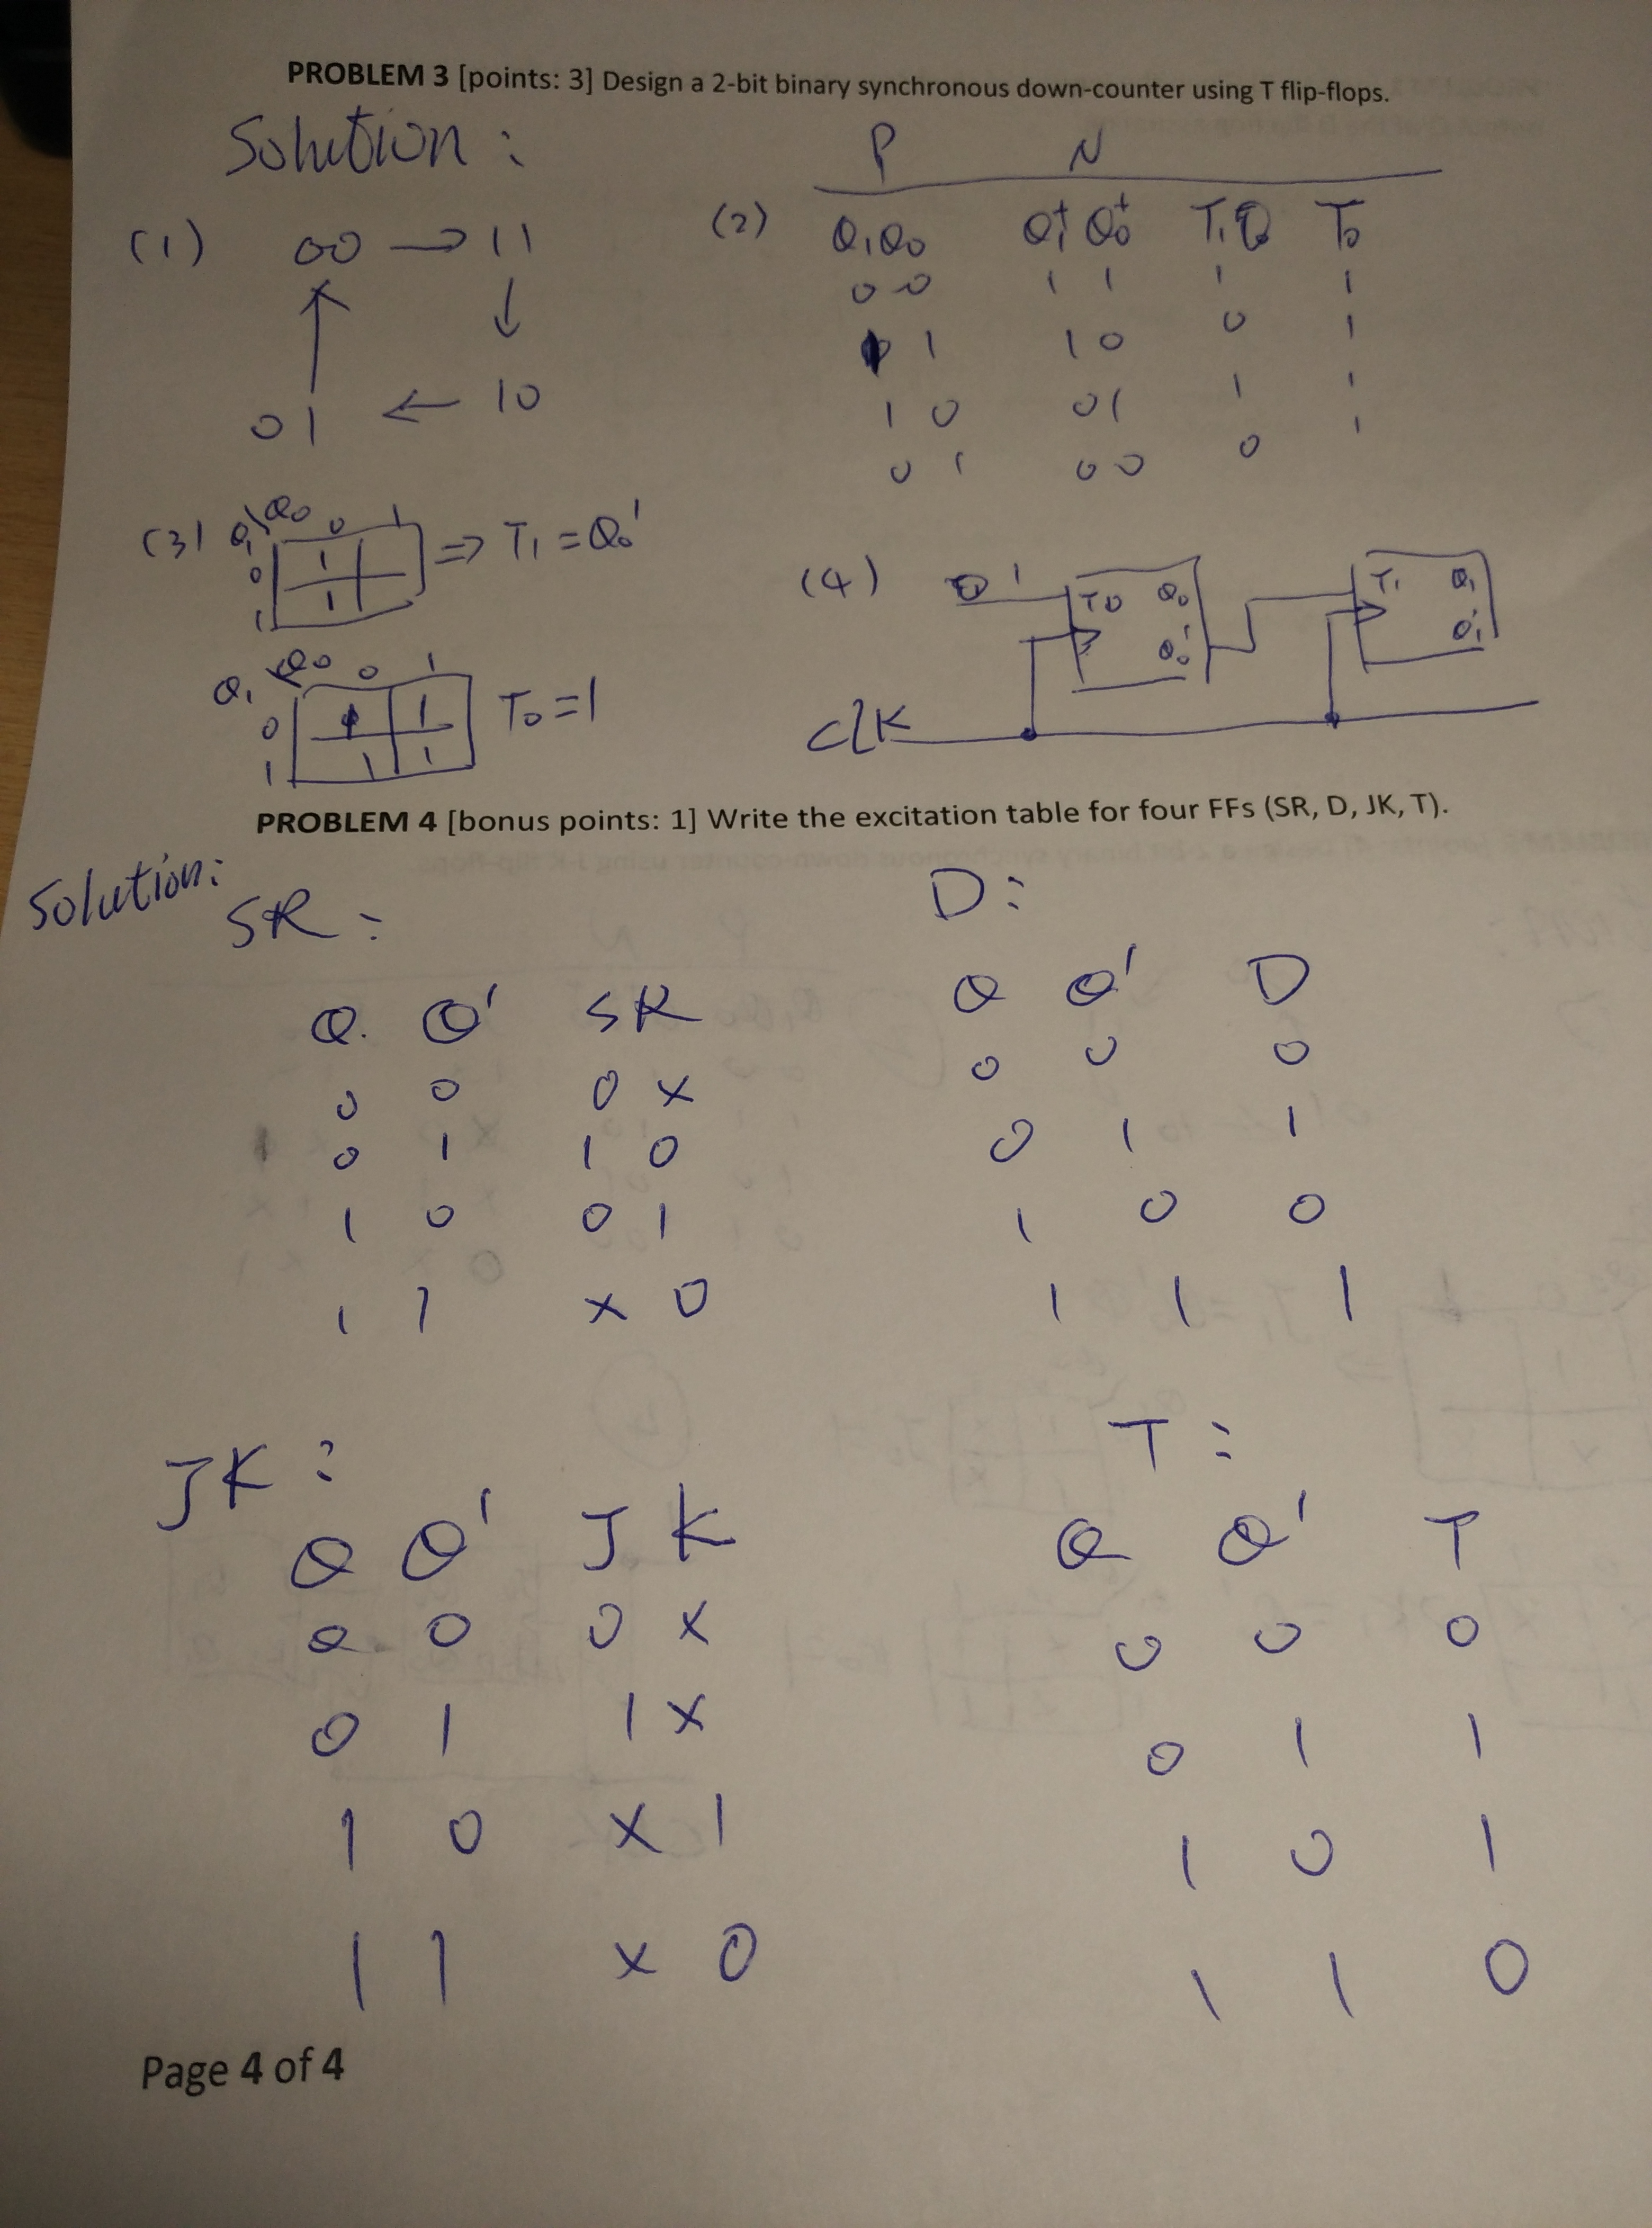 PROBLEM 3 [points: 3] Design a 2-bit binary synchronous down-counter using T flip-flops.
Solution:
P N
(1) 00 → 11
↑ ↓
01 ← 10
(2) Q₁Q₀ Q₁⁺ Q₀⁺ T₁ T₀
00 1 1 1 1
1 10 0 1
1 0 01 1 1
0 1 00 0 1
(3) Q₁\Q₀ 0 1
0 1
1 1
⇒ T₁ = Q₀'
Q₁ Q₀ 0 1
0 1 1
1 1 1
T₀ = 1
(4) 1 T₀ Q₀ T₁ Q₁
Q₀' Q₁'
CLK
PROBLEM 4 [bonus points: 1] Write the excitation table for four FFs (SR, D, JK, T).
Solution:
SR:
Q Q' SR
0 0 0 x
0 1 1 0
1 0 0 1
1 1 x 0
D:
Q Q' D
0 0 0
0 1 1
1 0 0
1 1 1
JK:
Q Q' J K
0 0 0 x
0 1 1 x
1 0 x 1
1 1 x 0
T:
Q Q' T
0 0 0
0 1 1
1 0 1
1 1 0
Page 4 of 4